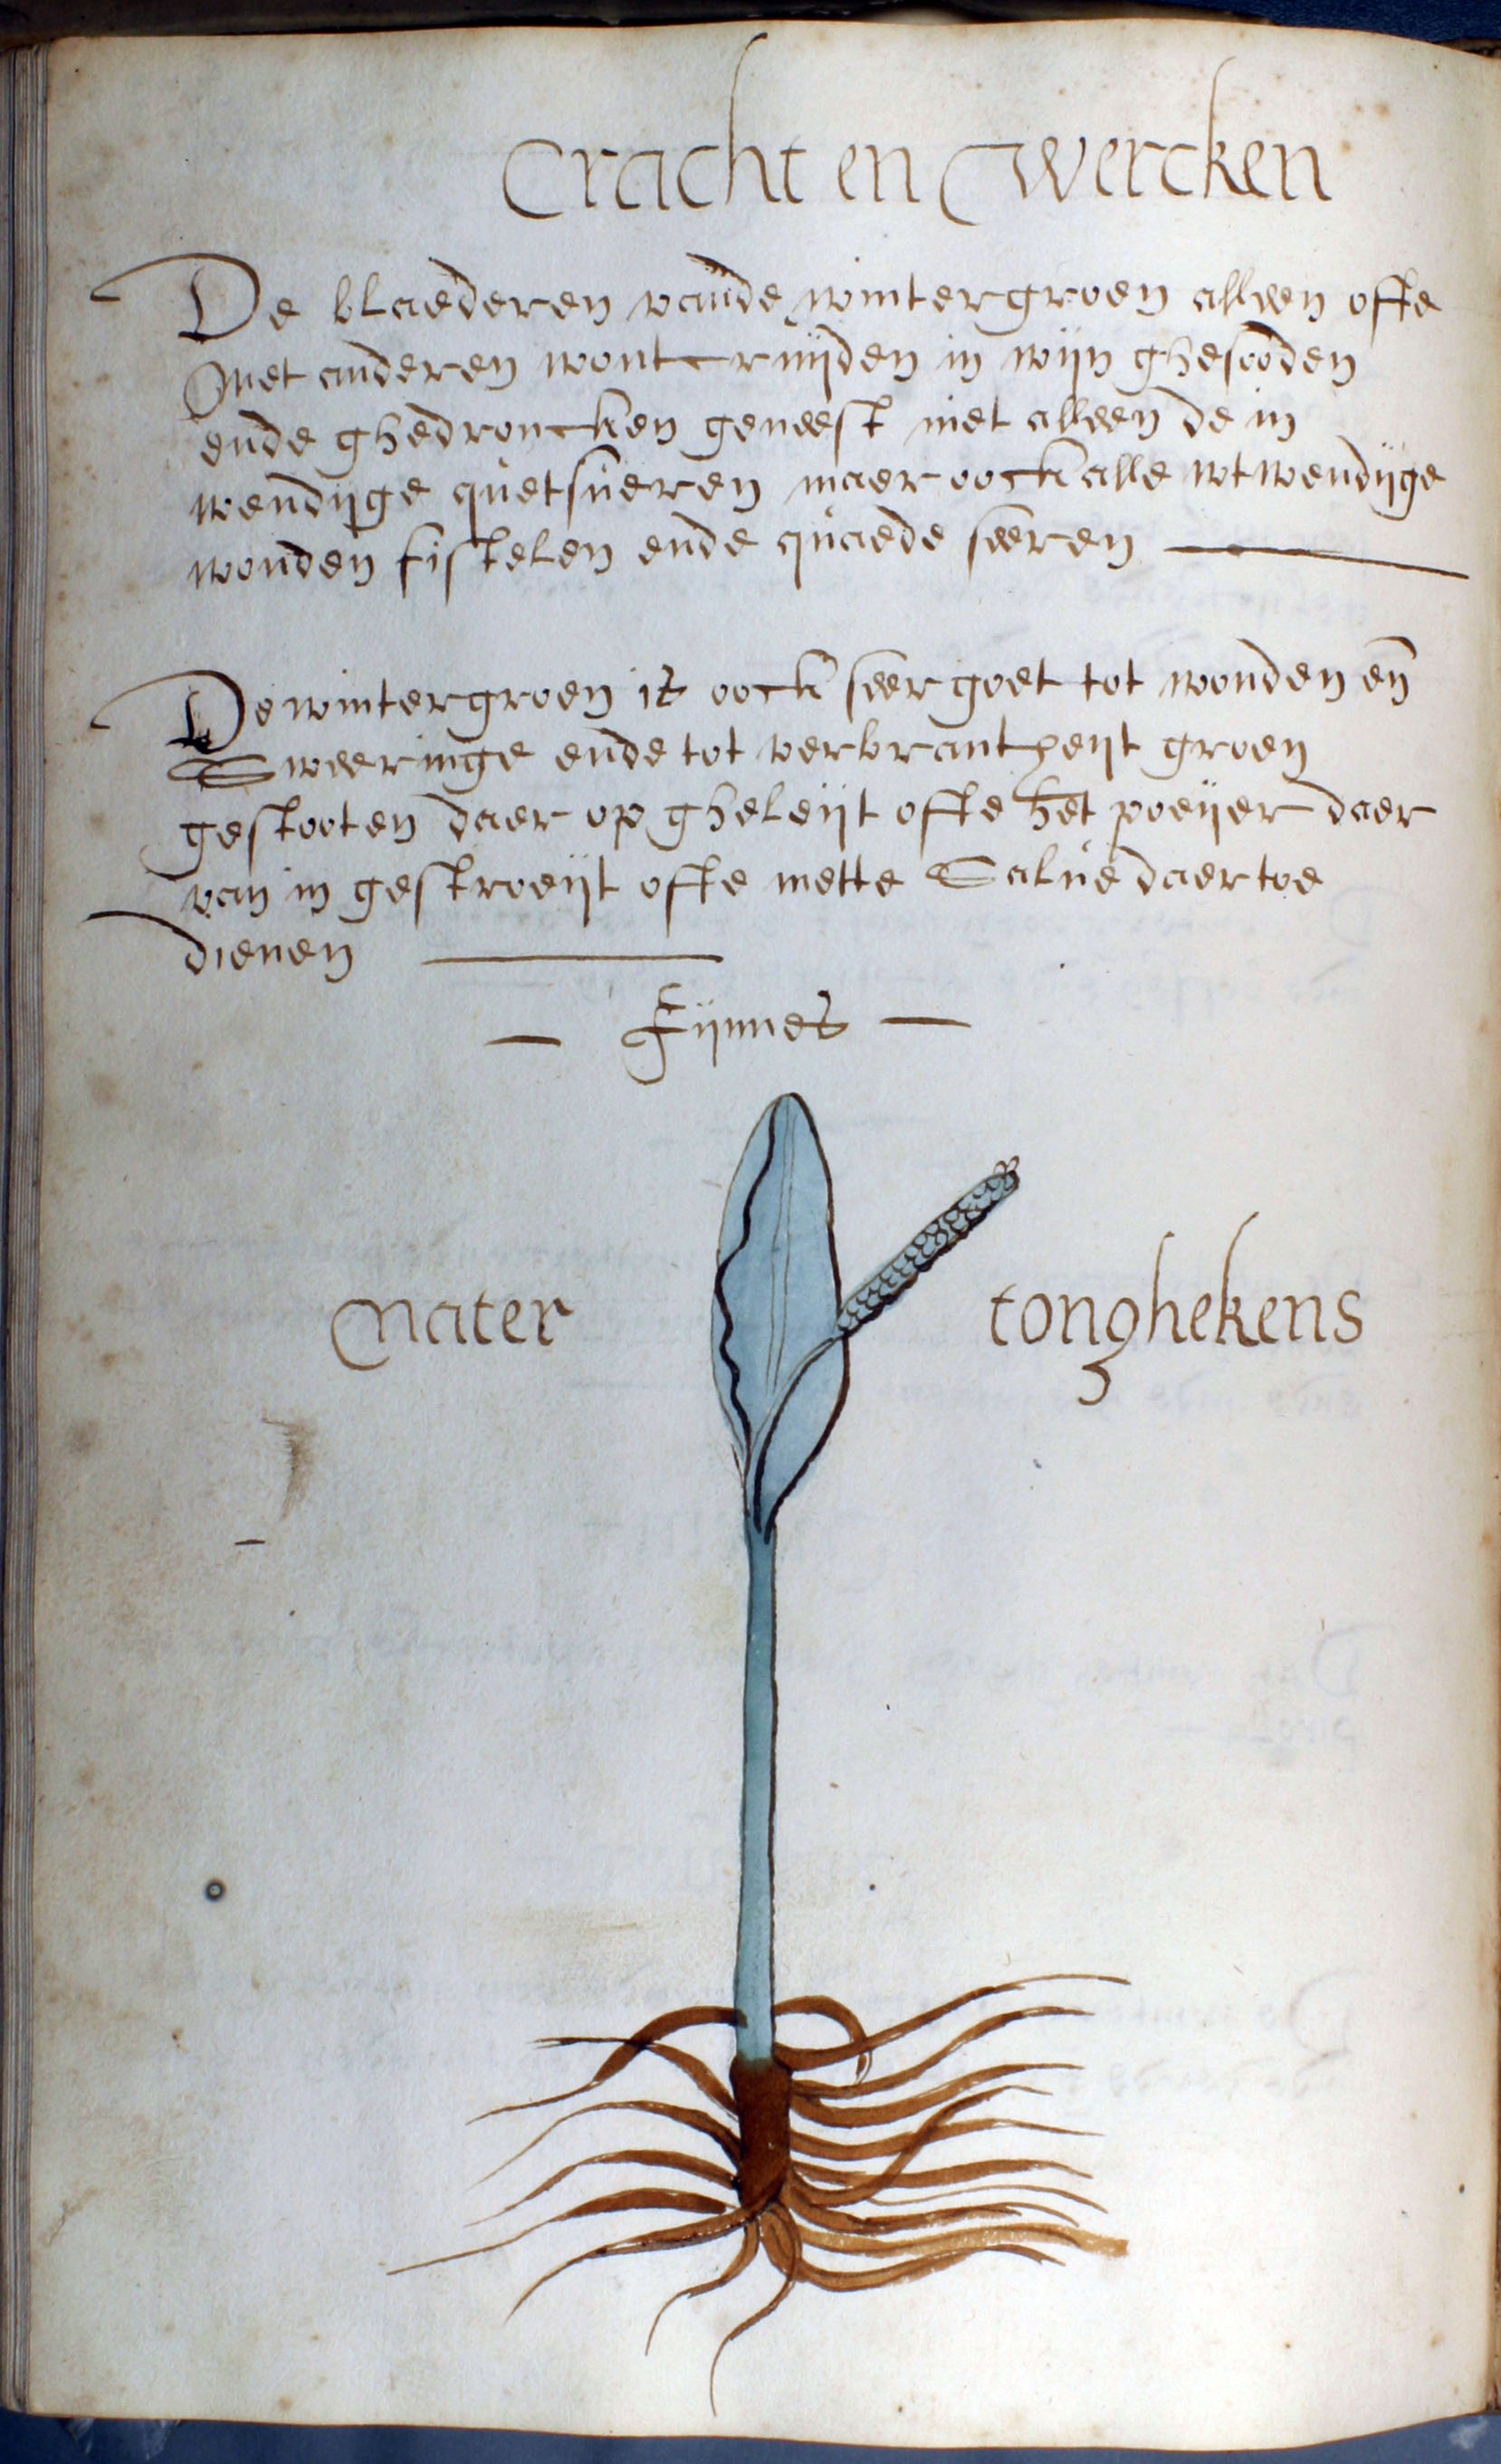 Cracht en Wercken
De blaederen vande wintergroen alleen ofte
Met anderen wontcruijden in wijn ghesooden
ende ghedroncken geneest niet alleen de in
wendijge quetsueren maer oock alle wtwendijge
wonden fistelen ende quaede seeren
De wintergroen is oock seer goet tot wonden en̄
Sweeringe ende tot verbrantheijt groen
gestooten daer op gheleijt ofte het poeijer daer
van in gestroeijt ofte mette Salue daer toe
dienen
Fijnnes
Nater tonghekens